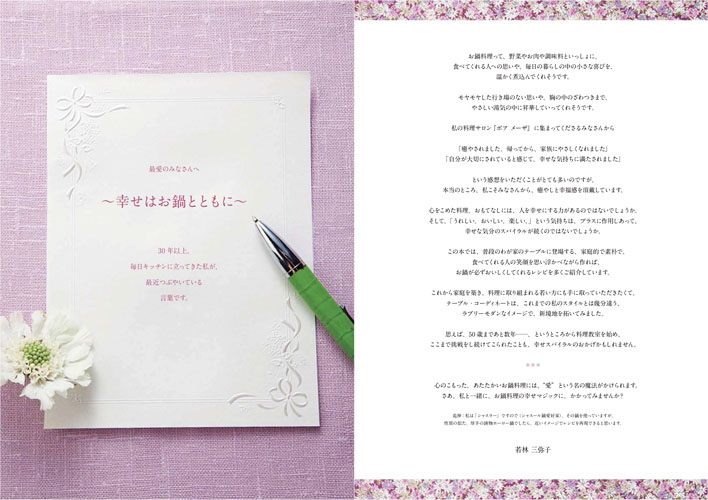 最愛のみなさんへ
～幸せはお鍋とともに～
30年以上、
毎日キッチンに立ってきた私が、
最近つぶやいている
言葉です。
お鍋料理って、野菜やお肉や調味料といっしょに、
食べてくれる人への思いや、毎日の暮らしの中の小さな喜びを、
温かく煮込んでくれそうです。
モヤモヤした行き場のない思いや、胸の中のざわつきまで、
やさしい湯気の中に昇華していってくれそうです。
私の料理サロン「ボア メーザ」に集まってくださるみなさんから
「癒やされました。帰ってから、家族にやさしくなれました」
「自分が大切にされていると感じて、幸せな気持ちに満たされました」
という感想をいただくことがとても多いのですが、
本当のところ、私こそみなさんから、癒やしと幸福感を頂戴しています。
心をこめた料理、おもてなしには、人を幸せにする力があるのではないでしょうか。
そして、「うれしい、おいしい、楽しい。」という気持ちは、プラスに作用しあって、
幸せな気分のスパイラルが続くのではないでしょうか。
この本では、普段のわが家のテーブルに登場する、家庭的で素朴で、
食べてくれる人の笑顔を思い浮かべながら作れば、
お鍋が必ずおいしくしてくれるレシピを多くご紹介しています。
これから家庭を築き、料理に取り組まれる若い方にも手に取っていただきたくて、
テーブル・コーディネートは、これまでの私のスタイルとは幾分違う、
ラブリーモダンなイメージで、新境地を拓いてみました。
思えば、50歳まであと数年――、というところから料理教室を始め、
ここまで挑戦をし続けてこられたことも、幸せスパイラルのおかげかもしれません。
＊＊＊
心のこもった、あたたかいお鍋料理には、“愛”という名の魔法がかけられます。
さあ、私と一緒に、お鍋料理の幸せマジックに、かかってみませんか？
追伸：私は「シャスラー」ですので（シャスール鍋愛好家）、その鍋を使っていますが、
性質の似た、厚手の鋳物ホーロー鍋でしたら、近いイメージでレシピを再現できると思います。
若林 三弥子